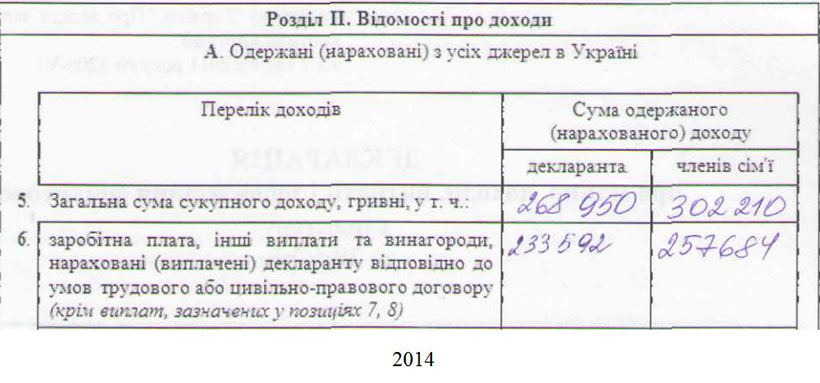 Розділ ІІ. Відомості про доходи
А. Одержані (нараховані) з усіх джерел в Україні
Перелік доходів
Сума одержаного
(нарахованого) доходу
декларанта
членів сім'ї
5. Загальна сума сукупного доходу, гривні, у т. ч.: 268 950 302 210
6. заробітна плата, інші виплати та винагороди, 233 592 257684
нараховані (виплачені) декларанту відповідно до
умов трудового або цивільно-правового договору
(крім виплат, зазначених у позиціях 7, 8)
2014